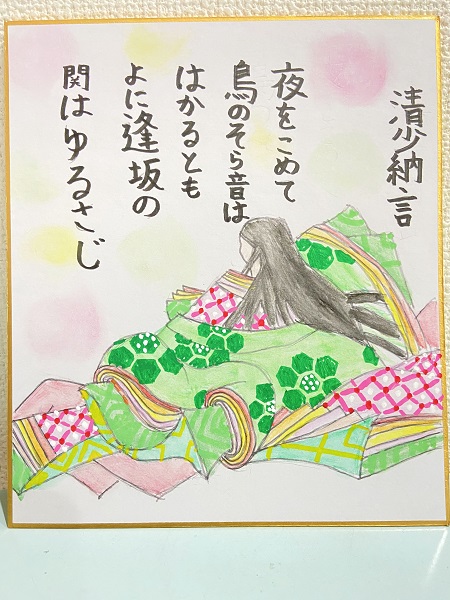 清少納言
夜をこめて
鳥のそら音は
はかるとも
よに逢坂の
関はゆるさじ